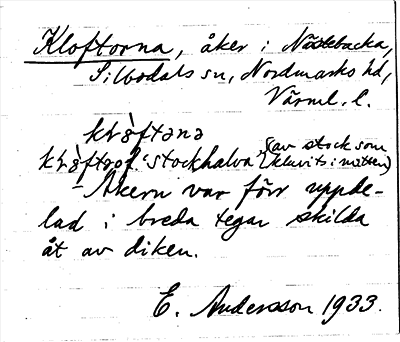 Kloftorna, åker i Nästebacka,
Silbodals sn, Nordmarks hd,
Värml. l.
klåftana
klåft, f. "stockhalva (av stock som kluvits i mitten)
- Åkern var förr uppde-
lad i breda tegar skilda
åt av diken.
E. Andersson 1933.